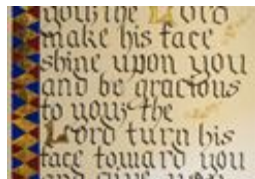 you; the Lord
make his face
shine upon you
and be gracious
to you; the
Lord turn his
face toward you
and give you